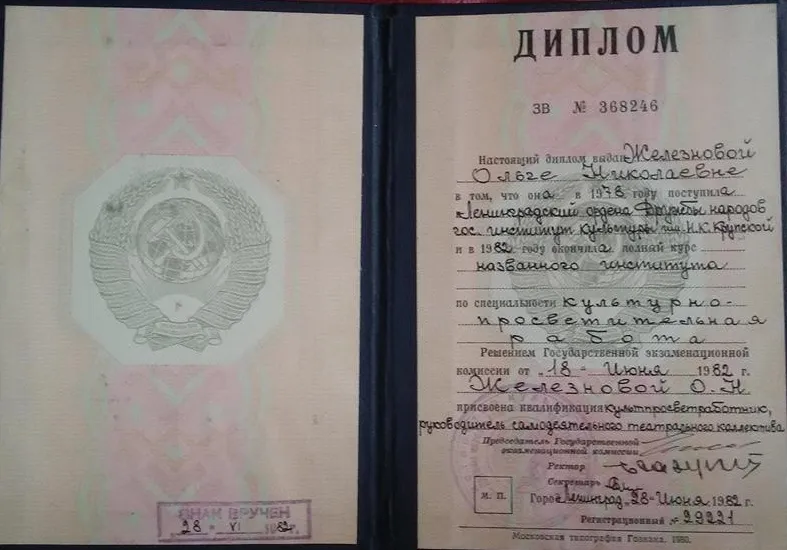 ЗНАК ВРУЧЕН
28 VI 1982г.
ДИПЛОМ
ЗВ № 368246
Настоящий диплом выдан Железновой
Ольге Николаевне
в том, что она в 1978 году поступила
в Ленинградский ордена Дружбы народов
гос. институт культуры им. Н.К. Крупской
и в 1982 году окончила полный курс
названного института
по специальности культурно-
просветительная
работа
Решением Государственной экзаменационной
комиссии от „18“ Июня 1982 г.
Железновой О.Н
присвоена квалификация культпросветработник,
руководитель самодеятельного театрального коллектива
Председатель Государственной
экзаменационной комиссии
Ректор
Секретарь
М. П.
Город Ленинград „28“ Июня 1982 г.
Регистрационный № 29221
Московская типография Гознака. 1980.